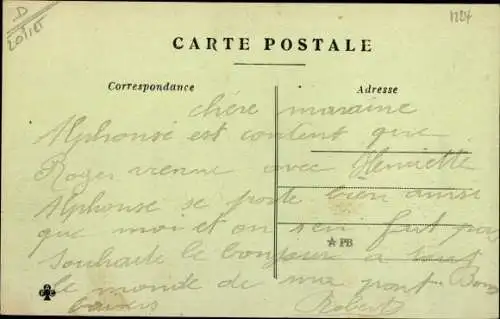 D
LOIRET
1224
CARTE POSTALE
Correspondance
Adresse
chère maraine
Alphonse est content que
Roger vienne avec Henriette
Alphonse se porte bien aussi
que moi et on s'en fait pas
souhaite le bonjour a tout
le monde de ma part Bons
baisers Robert
PB